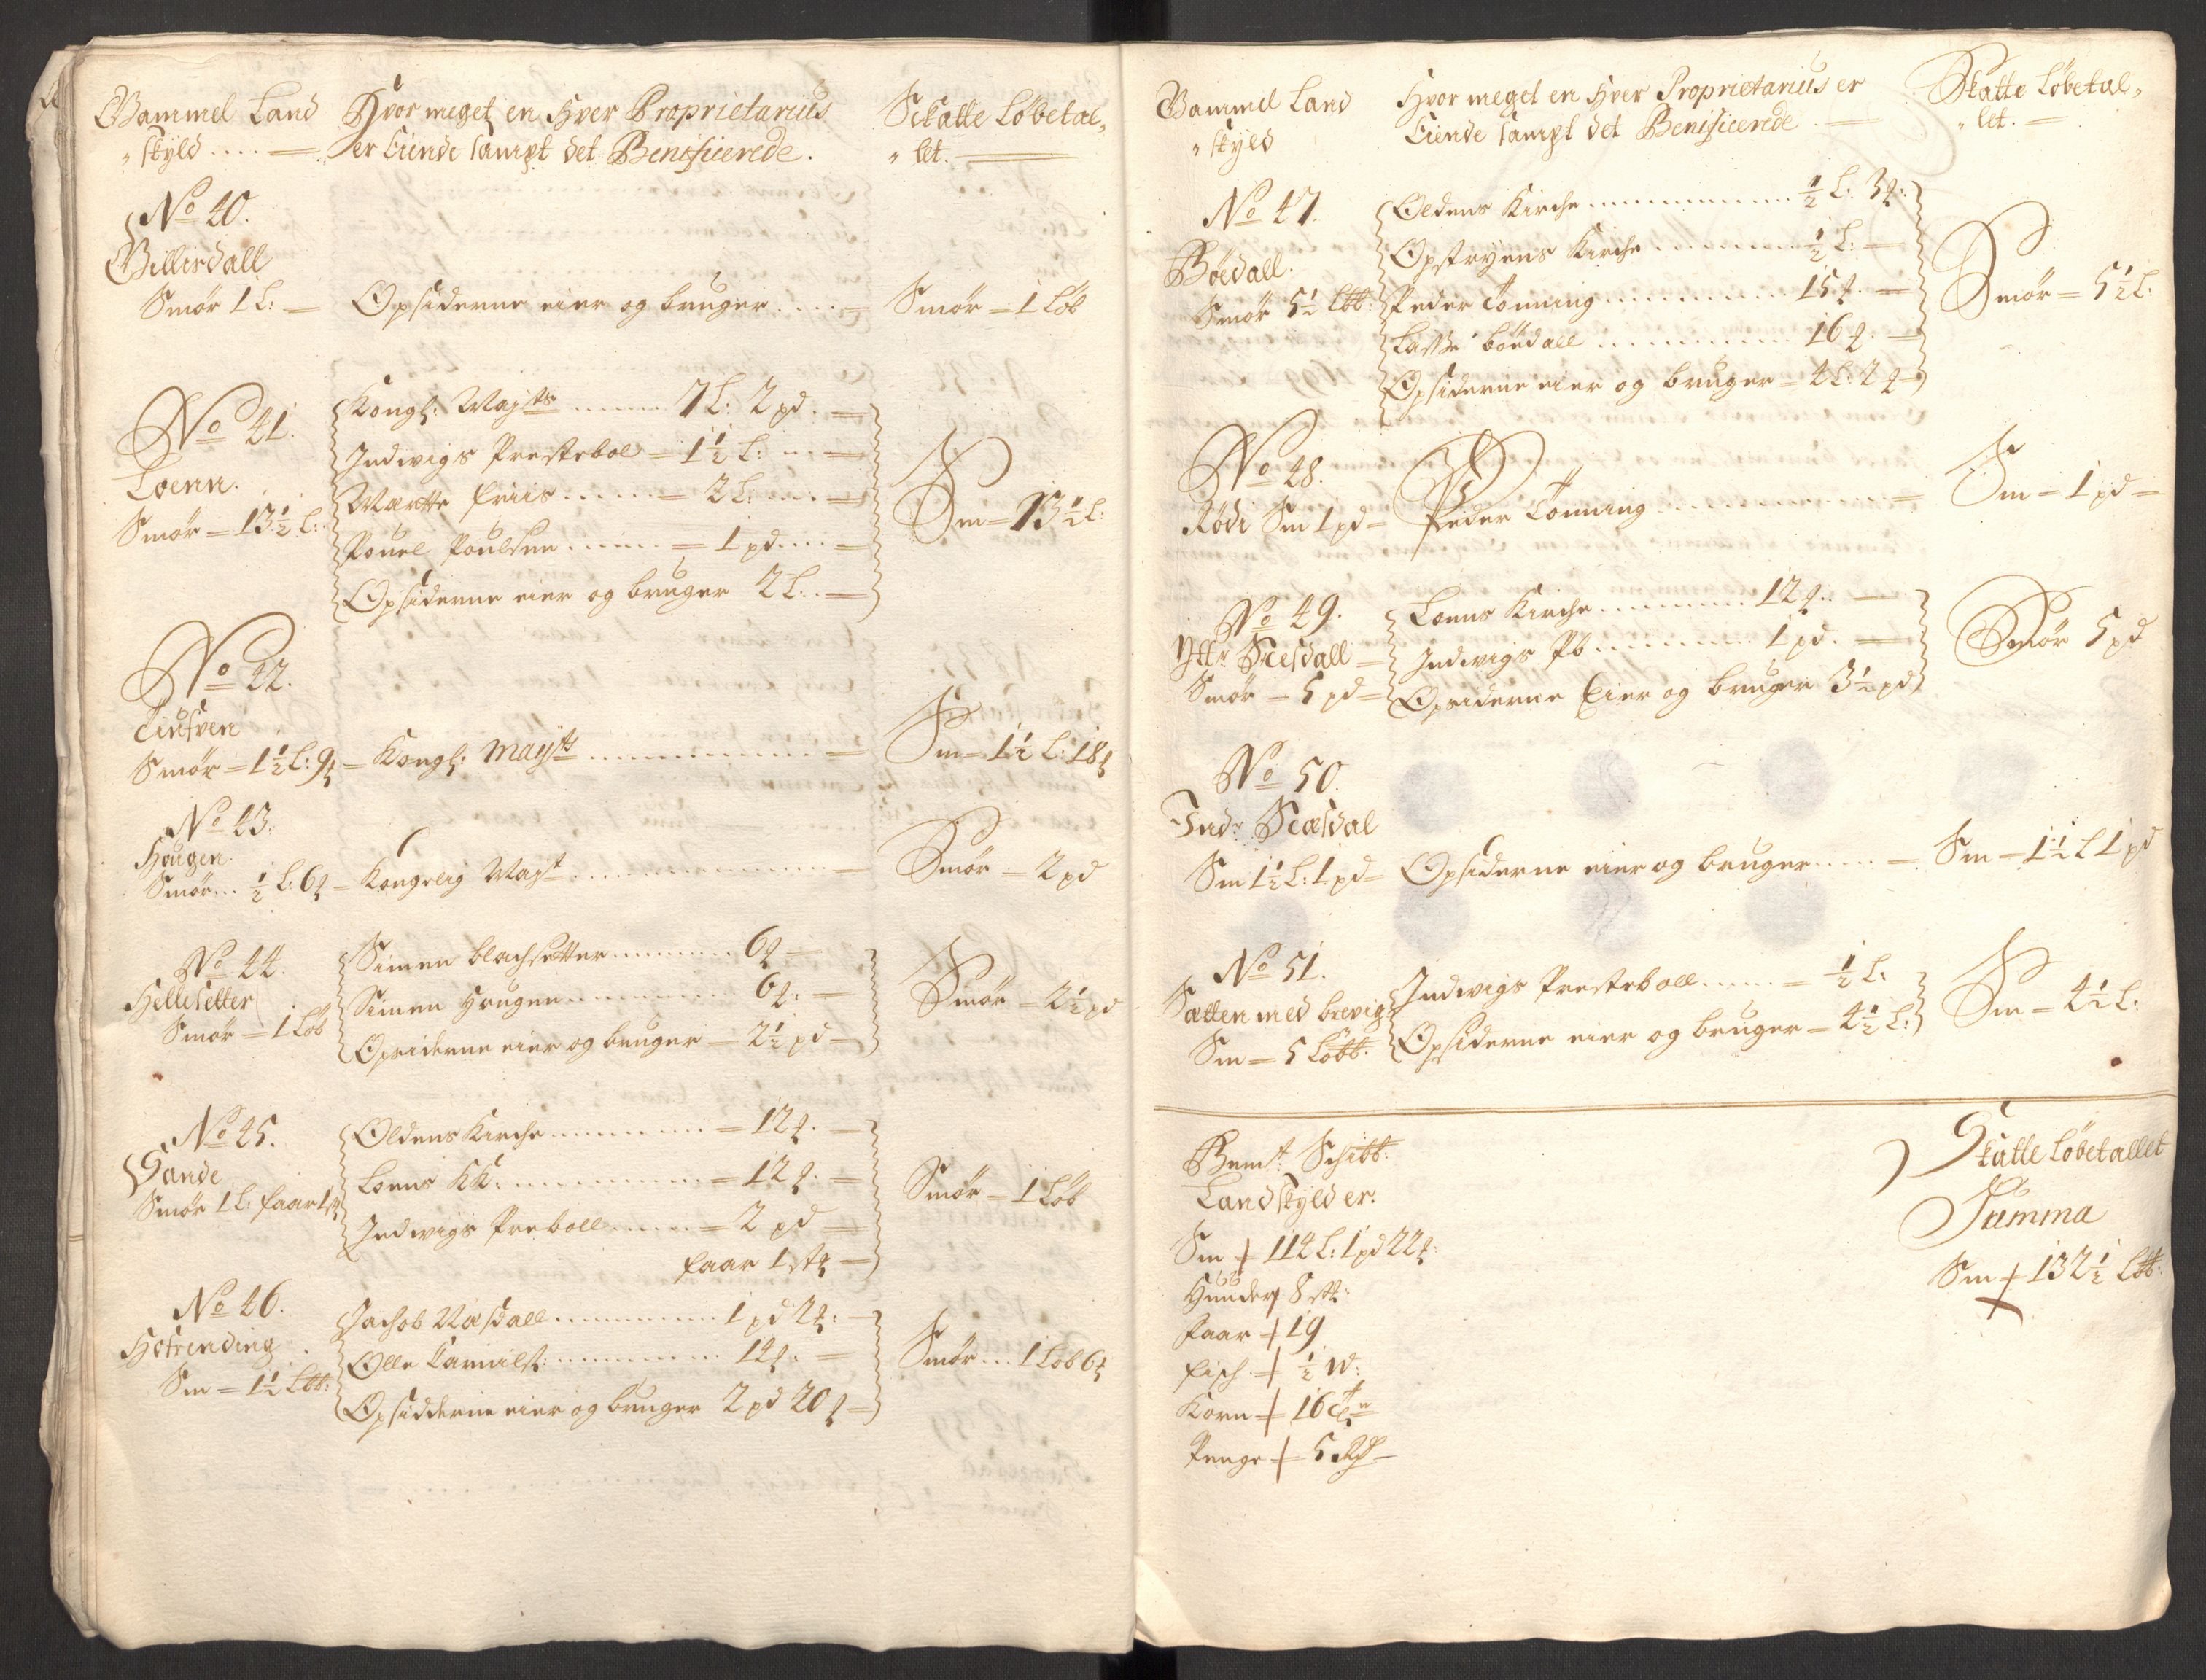 Gammel Land
„skyld ....
Hvor meget en Hver Proprietarius
er Eiende sampt det Benificerede.
Schatte Løbetal„
„let.
No 40.
Gillisdall
Smør 1 L: — Opsiderne eier og bruger .... Smør = 1 Løb
No 41.
Loenn.
Smør = 13½ L:
Kongl: Maj:ts ...... 7 L: 2 pd. —
Indvigs Prestebol = 1½ L: ... —
Marthe Friis ..... = 2 L: ... —
Pouel Poulsen ...... = 1 pd .... —
Opsiderne eier og bruger 2 L: . —
Sm = 13½ L:
No 42.
Tiufven
Smør = 1½ L: 9 ℔ = Kongl: Maij:tt ............ Sm = 1½ L: 18 ℔
No 43.
Hougen.
Smør ... ½ L: 6 ℔ = Kongelig Maj:t ............ Smør = 2 pd
No 44.
Hellesetter
Smør = 1 Løb
Simen Blachsetter ........ 6 ℔ —
Simen Hougen ........... 6 ℔: —
Opsiderne eier og bruger — 2½ pd —
Smør = 2½ pd
No 45.
Sande
Smør 1 L: faar 1 st
Oldens Kirche ........... = 12 ℔. —
Loens KK: ............. = 12 ℔. —
Indvigs Preboll ...... = 2 pd —
faar 1 st —
Smør = 1 Løb
No 46.
Hotrending
Sm = 1½ Løb:
Jachob Næsdall ............ 1 pd 2 ℔: —
Olle ............ 12 ℔. —
Opsidderne eier og bruger 2 pd 20 ℔ —
Smør ... 1 Løb 6 ℔
Gammel Land
„skyld
Hvor meget en Hver Proprietarius er
Eiende sampt det Benificerede —
Skatte Løbetal„
„let. —
No 47.
Bødall.
Smør 5½ Løb:
Oldens Kirche ............ ½ L: 3 ℔:
Opstryens Kirche ......... ½ L: —
Peder Tønning ............ 15 ℔. —
Lasse Bødall ............ 16 ℔. —
Opsiderne eier og bruger = 4 L: 2 ℔ —
Smør = 5½ L:
No 48.
Rødi Sm 1 pd = Peder Tønning ............ Sm = 1 pd —
No 49.
Ytt:r Næsdall
Smør = 5 pd
Loens Kirche ......... 12 ℔. . —
Indvigs Pb ............ 1 pd. —
Opsiderne Eier og bruger 3½ pd
Smør 5 pd
No 50.
Ind:r Næsdal
Sm 1½ L: 1 pd = Opsiderne eier og bruger ..... = Sm = 1½ L 1 pd
No 51.
Sætten med brevig
Sm = 5 Løbb:
Indvigs Presteboll ...... = ½ L:
Opsiderne eier og bruger = 4½ L:
Sm = 4½ L:
Bem:t Schibb:
Landskyld er:
Sm = 114 L: 1 pd 22 ℔:
Huuder 8 st:
Faar = 19
Fisch = ½ W:
Korn = 16
Penge = 5 Rd —
Skatte Løbetallet
Summa
Sm = 132½ Løb: